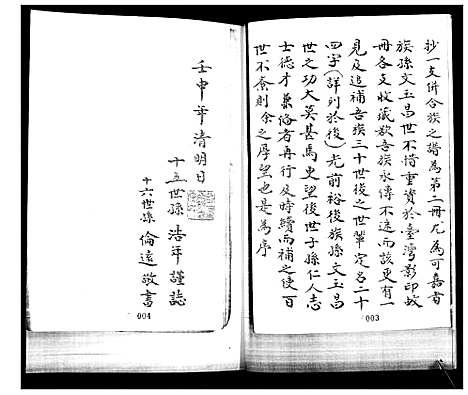 抄一支併合族之譜為第二冊尤為可嘉者
族孫文玉昌世不惜重資於臺灣影印故
冊各支收藏欲吾族永傳不迷而該更有一
見及追補吾族三十世後之世輩定名二十
四字(詳列於後)光前裕後族孫文玉昌
世之功大莫甚焉更望後世子孫仁人志
士德才兼俻者再行及時續而補之使百
世不紊則余之厚望也是為序
003
壬申年清明日
十五世孫浩年謹誌
十六世孫倫遠敬書
004